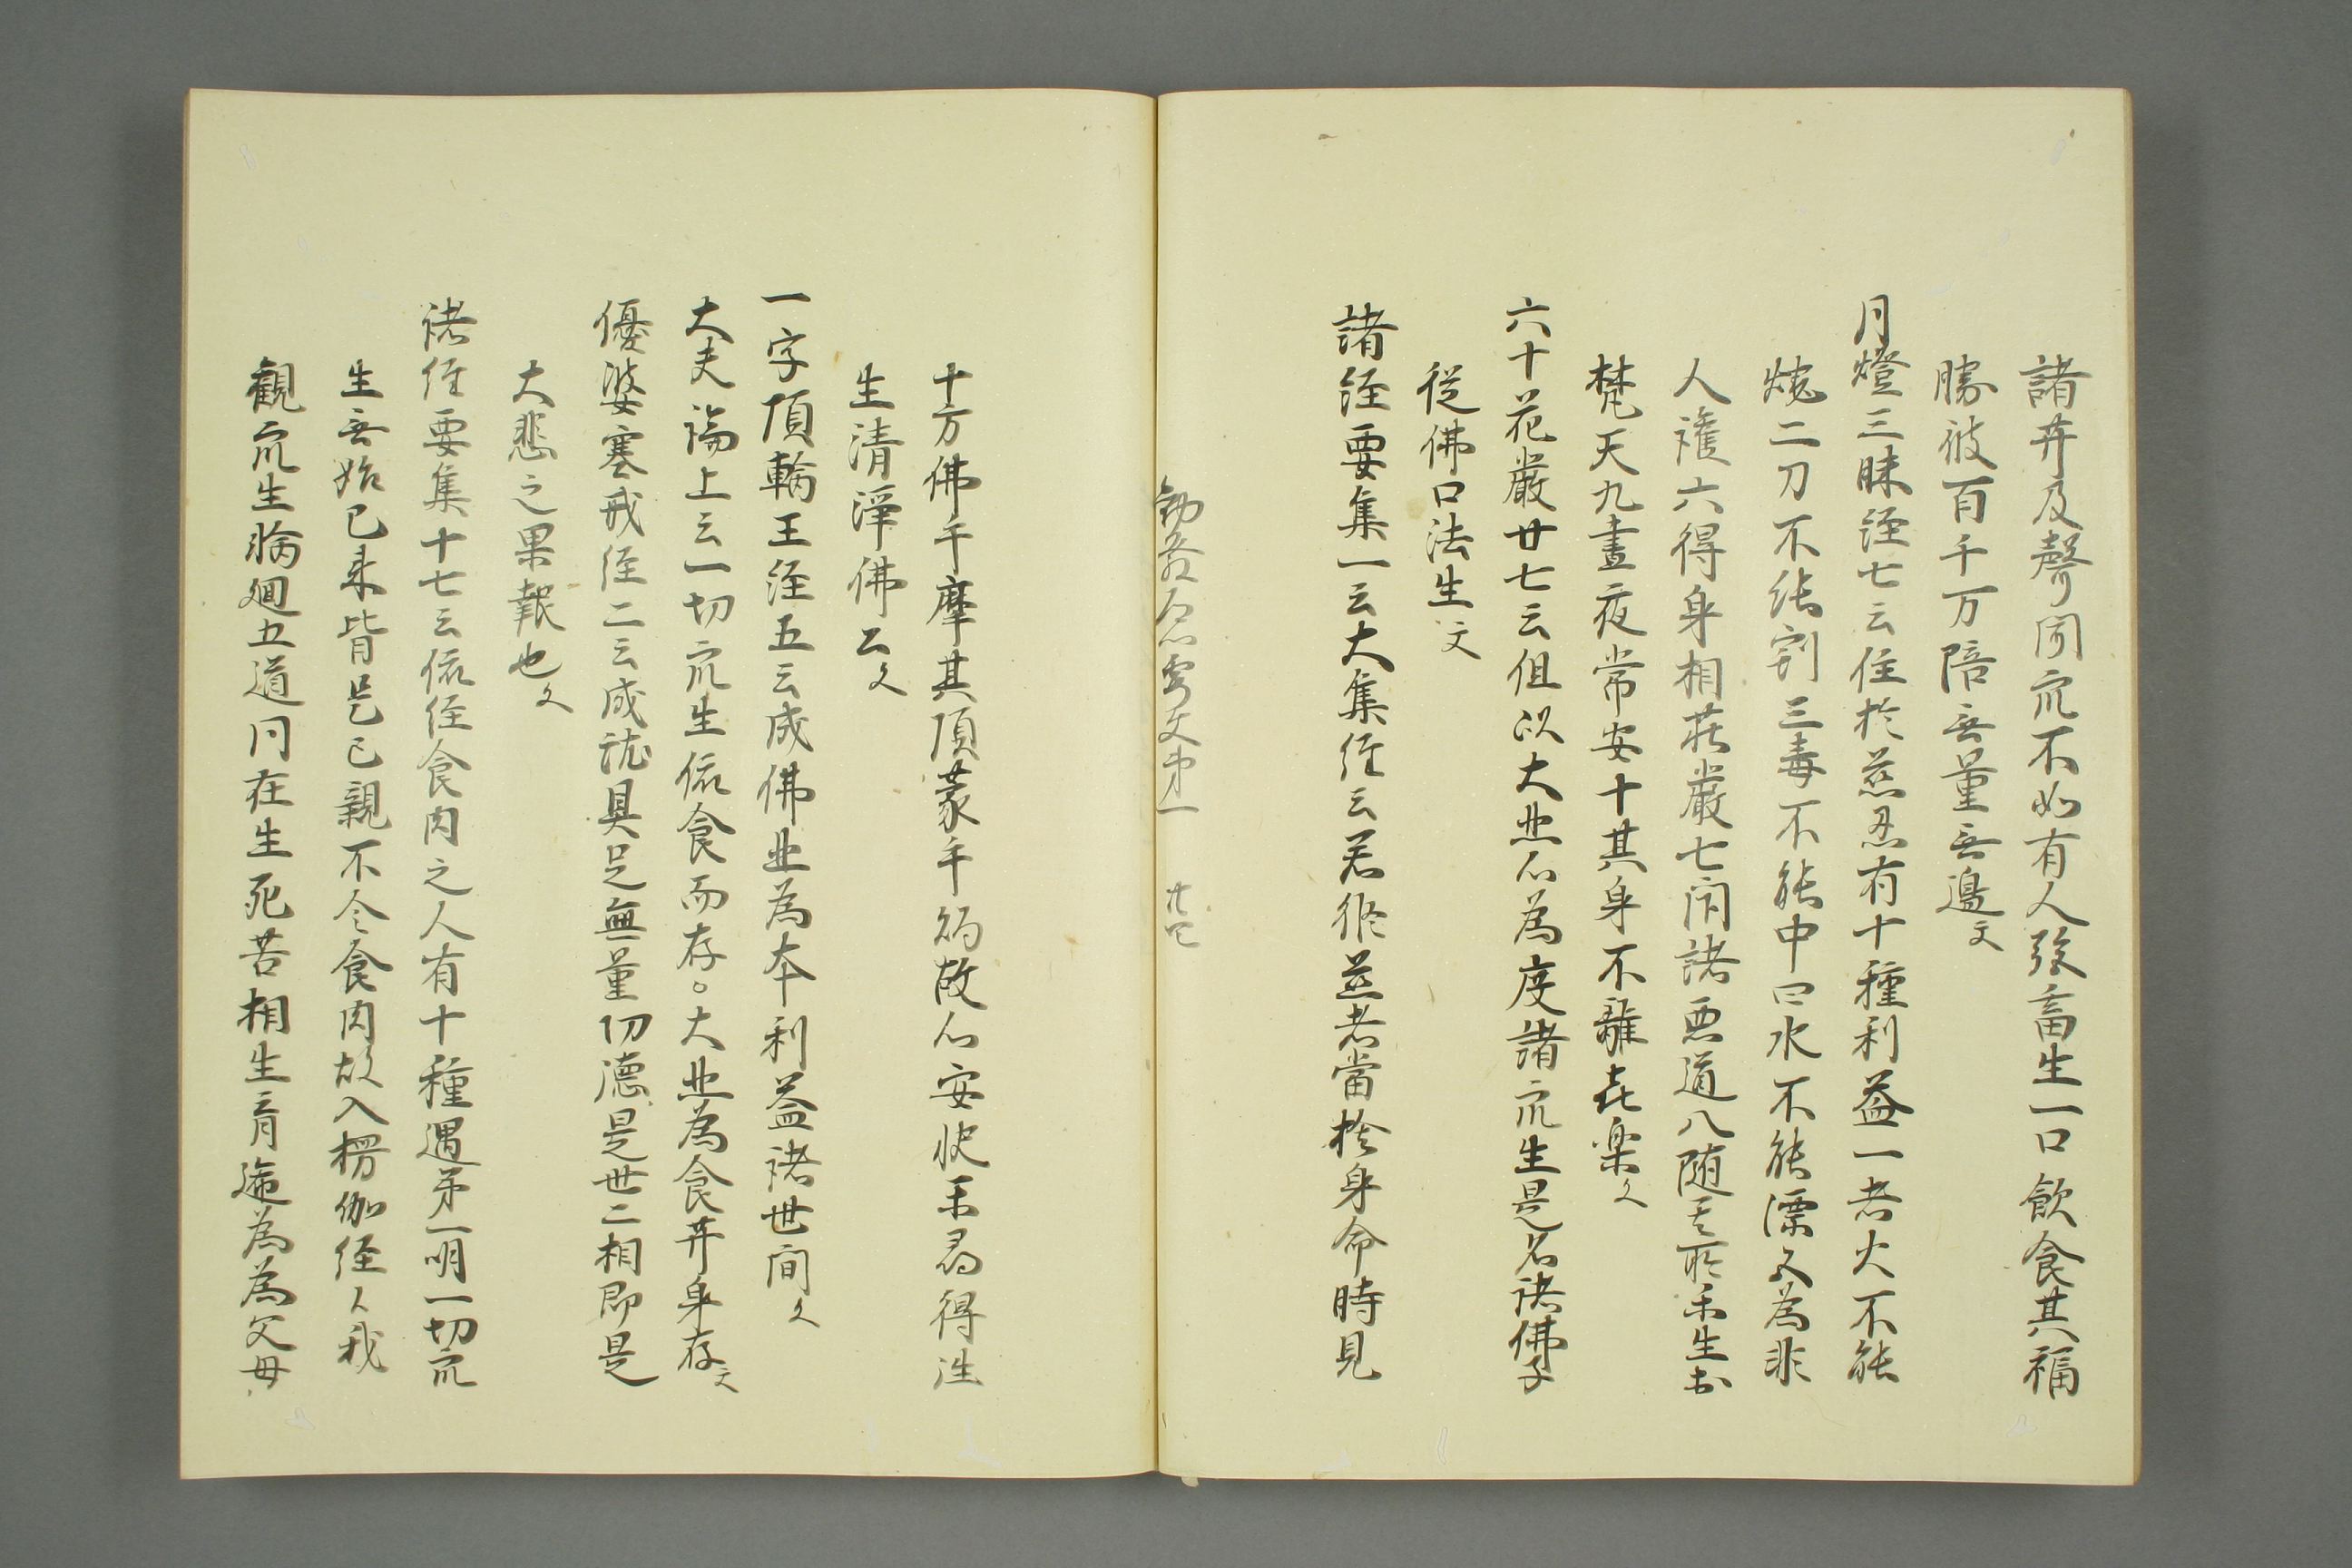 諸艹及聲聞众不如有人發畜生一口飲食其福
勝彼百千万陪无量无邊文
月燈三昧経七云住於慈忍有十種利益一者火不能
燒二刀不能割三毒不能中四水不能漂五為非
人護六得身相荘嚴七閇諸悪道八随其所樂生於
梵天九晝夜常安十其身不離㐂楽文
六十花嚴廿七云但以大悲心為度諸众生是名諸佛子
従佛口法生文
諸経要集一云大集経云若修慈者當捨身命時見
勸發 要文第一
十方佛手摩其頂蒙手觸故心安快樂尋得徃
生清浄佛土文
一字頂輪王経五云成佛悲為本利益諸世间文
大史 上云一切众生依食而存。大悲為食艹身存文
優婆塞戒経二云成就具足無量㓛德是世二相即是
大悲之果報也文
諸経要集十七云依経食肉之人有十種過第一明一切众
生无始已来皆是己親不令食肉故入楞伽経云我
觀众生輪廻五道同在生死苦相生育遞為為父母